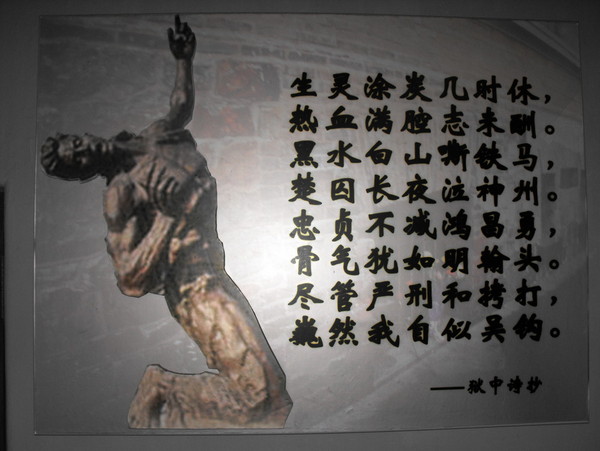 生灵涂炭几时休，
热血满腔志未酬。
黑水白山嘶铁马，
楚囚长夜泣神州。
忠贞不减鸿昌勇，
骨气犹如明翰头。
尽管严刑和拷打，
巍然我自似吴钩。
——狱中诗抄